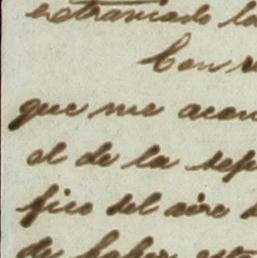 extraviado la
Con r
que me acon
el de la sep
fico del aire
de haber esta